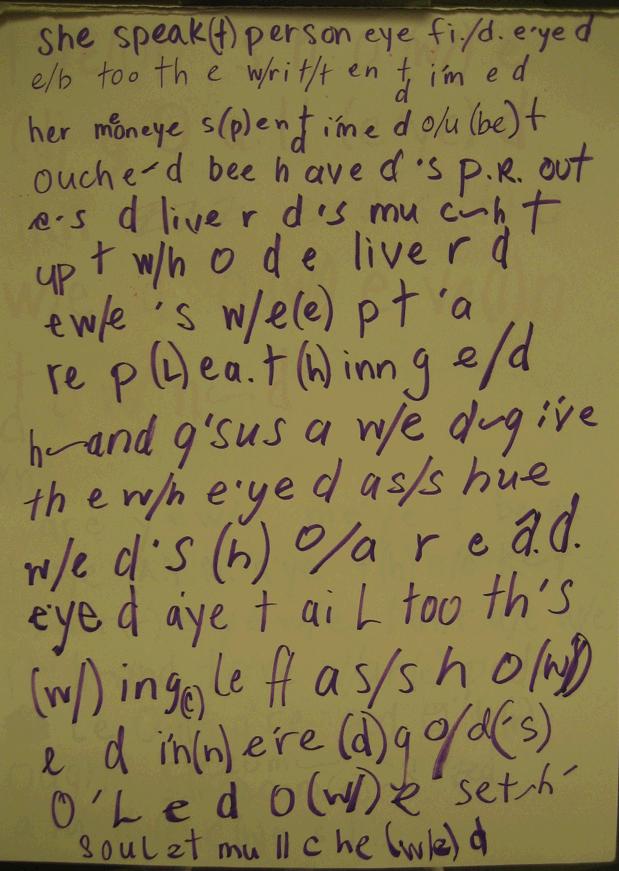 she speak(t) person eye fi./d. e·yed
e/b too th e w/rit/t en t/d im e d
her moneye s(p)ent/d ime d o/u (be) t
ouche-d bee h ave d 's p.R. out
e·s d live r d 's mu c~h t
up t w/h o d e live r d
ew/e 's w/e(e) p t 'a
re p (L) ea.t (h) inn g e/d
h~and g'sus a w/e d~g i've
th e w/h e·ye d as/s hue
w/e d's (h) o/a r e a.d.
eye d aye t ai L too th's
(w/) ing(c) le ff as/s h o(w/)
e d in(n) ere (d) go/d('s)
O'L e d o(w/)e set~h'
soul et mu ll c he (w/e) d